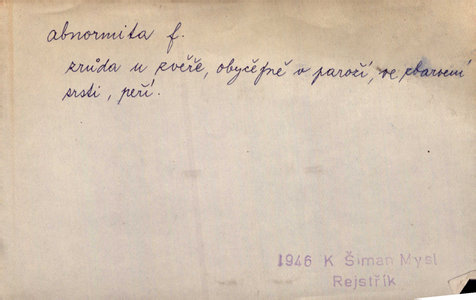 abnormita f.
zrůda u zvěře, obyčejně v paroží, ve zbarvení
srsti, peří.
1946 K Šiman Mysl
Rejstřík